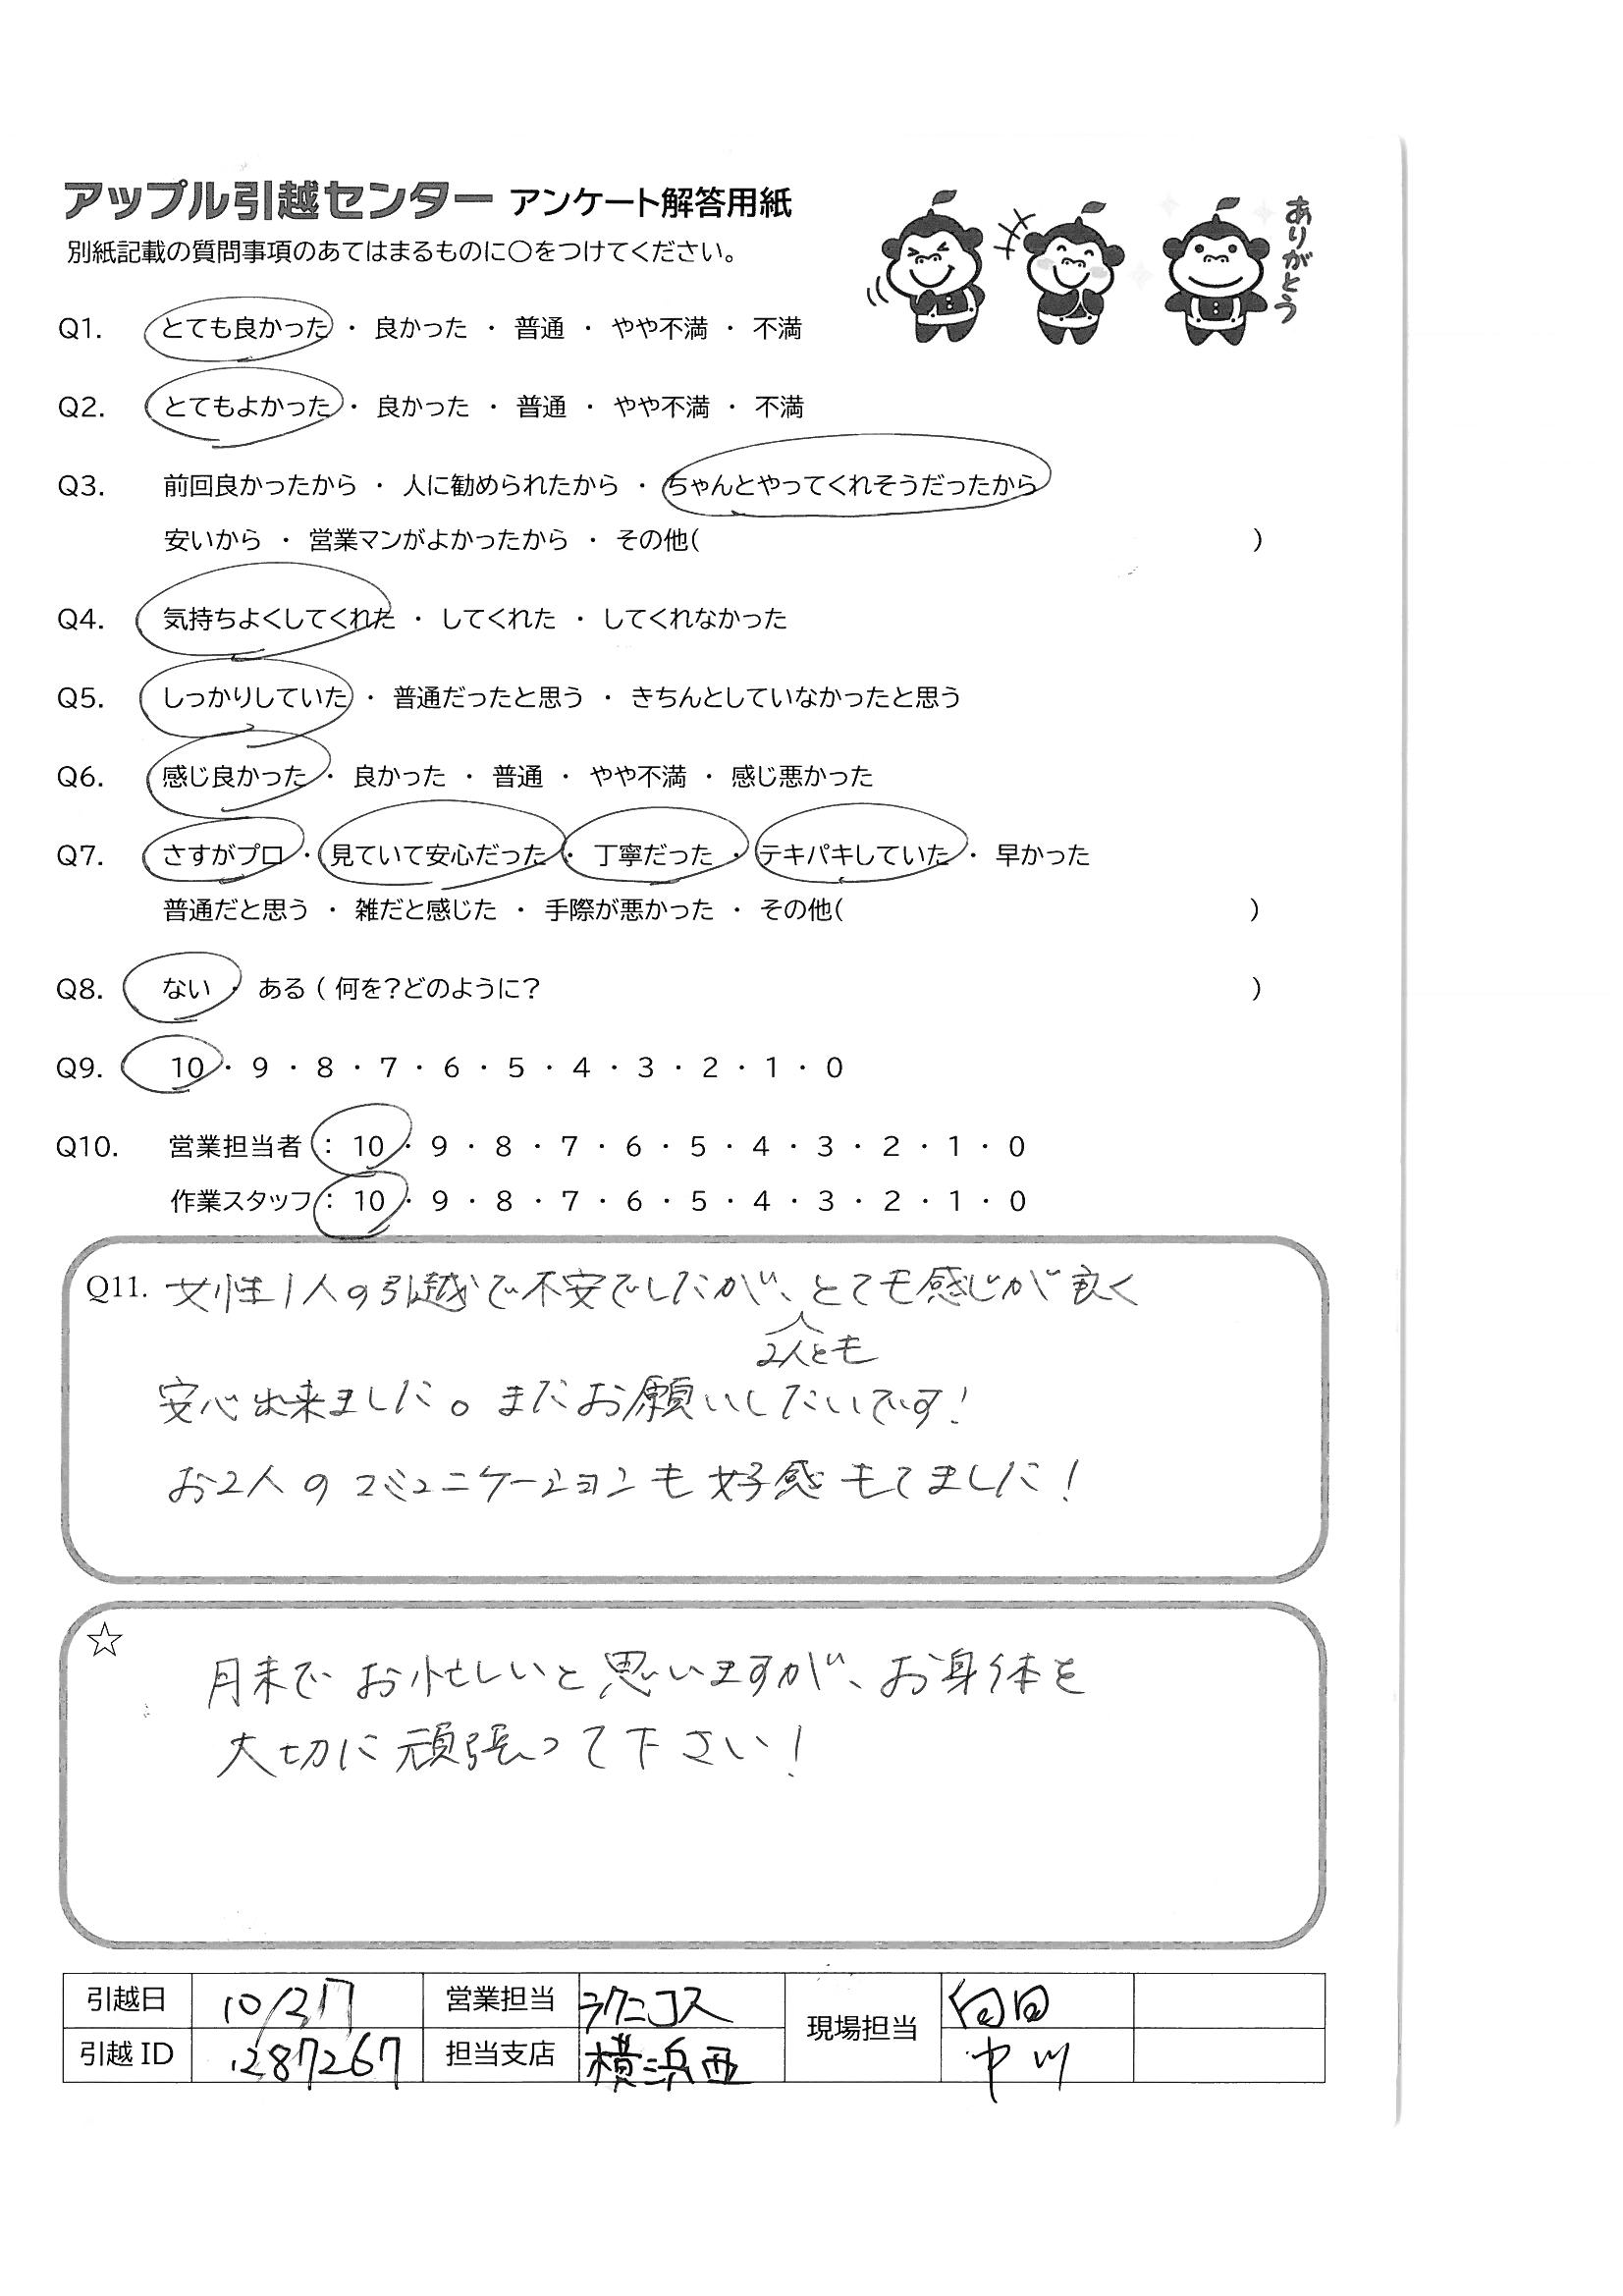 アップル引越センター アンケート解答用紙
別紙記載の質問事項のあてはまるものに○をつけてください。
ありがとう
Q1. とても良かった ・ 良かった ・ 普通 ・ やや不満 ・ 不満
Q2. とてもよかった ・ 良かった ・ 普通 ・ やや不満 ・ 不満
Q3. 前回良かったから ・ 人に勧められたから ・ ちゃんとやってくれそうだったから
安いから ・ 営業マンがよかったから ・ その他( )
Q4. 気持ちよくしてくれた ・ してくれた ・ してくれなかった
Q5. しっかりしていた ・ 普通だったと思う ・ きちんとしていなかったと思う
Q6. 感じ良かった ・ 良かった ・ 普通 ・ やや不満 ・ 感じ悪かった
Q7. さすがプロ ・ 見ていて安心だった ・ 丁寧だった ・ テキパキしていた ・ 早かった
普通だと思う ・ 雑だと感じた ・ 手際が悪かった ・ その他( )
Q8. ない ・ ある ( 何を?どのように? )
Q9. 10 ・ 9 ・ 8 ・ 7 ・ 6 ・ 5 ・ 4 ・ 3 ・ 2 ・ 1 ・ 0
Q10. 営業担当者 : 10 ・ 9 ・ 8 ・ 7 ・ 6 ・ 5 ・ 4 ・ 3 ・ 2 ・ 1 ・ 0
作業スタッフ : 10 ・ 9 ・ 8 ・ 7 ・ 6 ・ 5 ・ 4 ・ 3 ・ 2 ・ 1 ・ 0
Q11. 女性1人の引越で不安でしたが、とても感じが良く
2人とも
安心出来ました。またお願いしたいです!
お2人のコミュニケーションも好感もてました!
☆
月末でお忙しいと思いますが、お身体を
大切に頑張って下さい!
引越日 10/27 営業担当 ラクニコス 現場担当
引越ID 1287267 担当支店 横浜西 中川